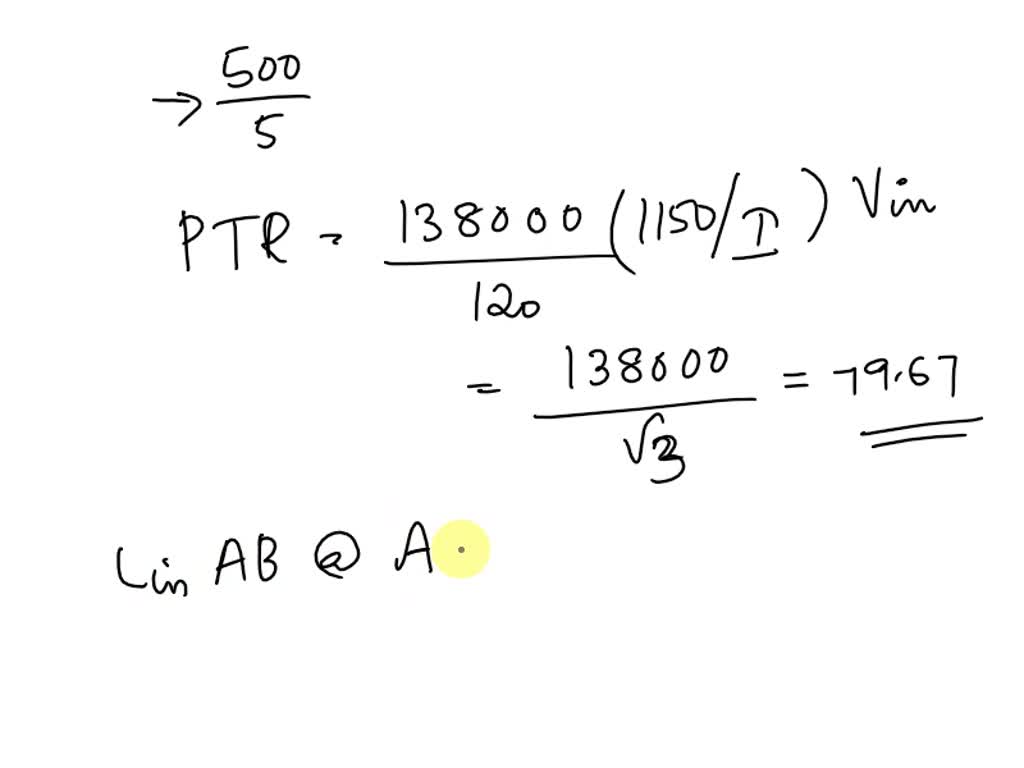 → 500/5
PTR - 138000/120 (1150/I) Vin
= 138000/√3 = 79.67
Lin AB @ A